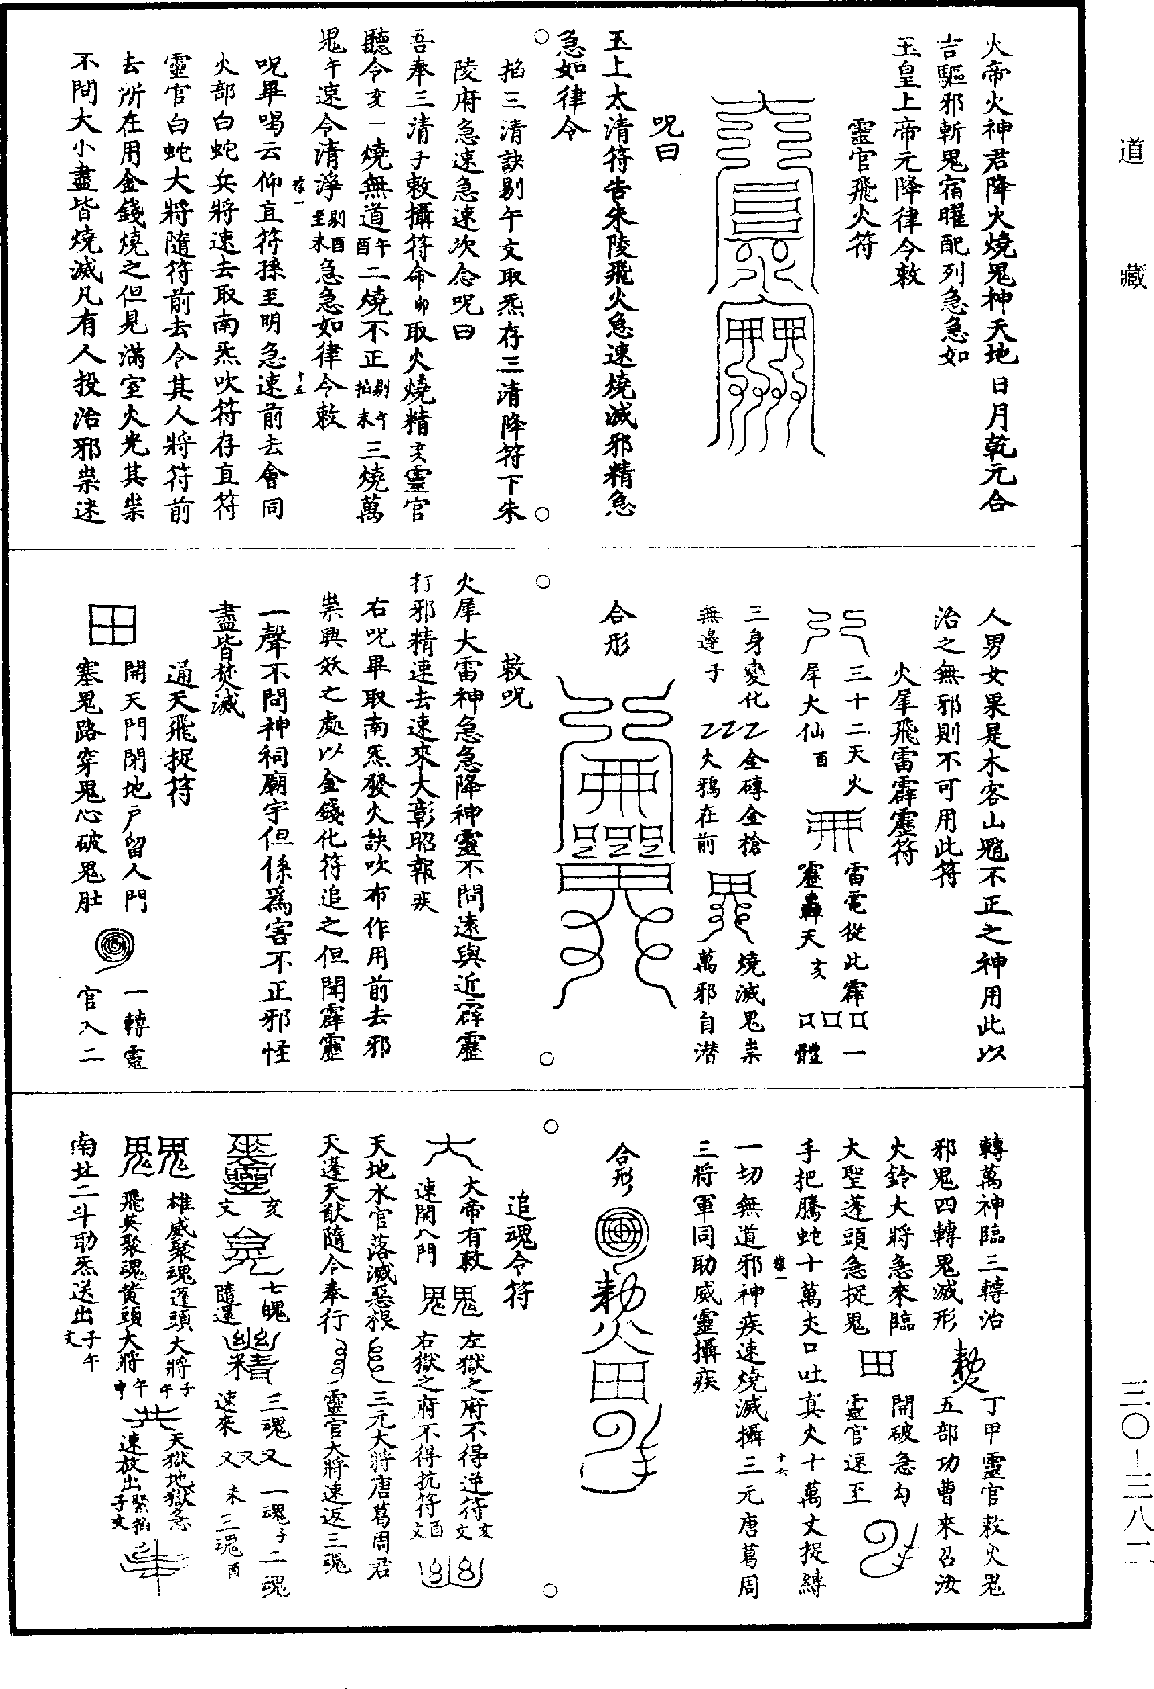 道藏
火帝火神君降火燒鬼神天地日月乾元合
吉驅邪斬鬼宿曜配列急急如
玉皇上帝元降律令敕
靈官飛火符
呪曰
玉上太清符告朱陵飛火急速燒滅邪精急
急如律令
掐三清訣剔午文取炁存三清降符下朱
陵府急速急速次念呪曰
吾奉三清子敕攝符命卯取火燒精亥靈官
聽令亥一燒無道午酉二燒不正剔午掐未三燒萬
鬼午速令清淨剔酉至未急急如律令敕
呪畢喝云仰直符孫至明急速前去會同
火部白蛇兵將速去取南炁吹符存直符
靈官白蛇大將隨符前去令其人將符前
去所在用金錢燒之但見滿室火光其祟
不問大小盡皆燒滅凡有人投治邪祟迷
人男女果是木客山魈不正之神用此以
治之無邪則不可用此符
火犀飛雷霹靂符
三十二天火
犀大仙酉
雷電從此霹
靂轟天亥
口口口一
體
三身變化
無邊子
乙乙乙金磚金槍
火鴉在前
燒滅鬼祟
萬邪自潛
合形
敕呪
火犀大雷神急急降神靈不問遠與近霹靂
打邪精速去速來大彰昭報疾
右呪畢取南炁發火訣吹布作用前去邪
祟興妖之處以金錢化符追之但聞霹靂
一聲不問神祠廟宇但係為害不正邪怪
盡皆焚滅
通天飛捉符
田
開天門閉地戶留人門
塞鬼路穿鬼心破鬼肚
一轉靈
官入二
轉萬神臨三轉治
邪鬼四轉鬼滅形
丁甲靈官敕火鬼
五部功曹來召汝
火鈴大將急來臨
大聖蓬頭急捉鬼
田
開破急勾
靈官速至
手把騰蛇十萬丈口吐真火十萬丈捉縛
一切無道邪神疾速燒滅攝三元唐葛周
三將軍同助威靈攝疾
合形
追魂令符
大帝有敕
速開八門
左獄之府不得逆符亥文
右獄之府不得抗符酉文
天地水官落滅惡根
三元大將唐葛周君
天蓬天猷隨令奉行
靈官大將速返三魂
亥
文
七魄
隨還
三魂
速來
一魂子二魂
未三魂酉
雄威聚魂蓬頭大將子午
飛英聚魂黃頭大將午申
天獄地獄急
速放出緊掐子文
南北二斗助炁送出子午文
三〇—三八二